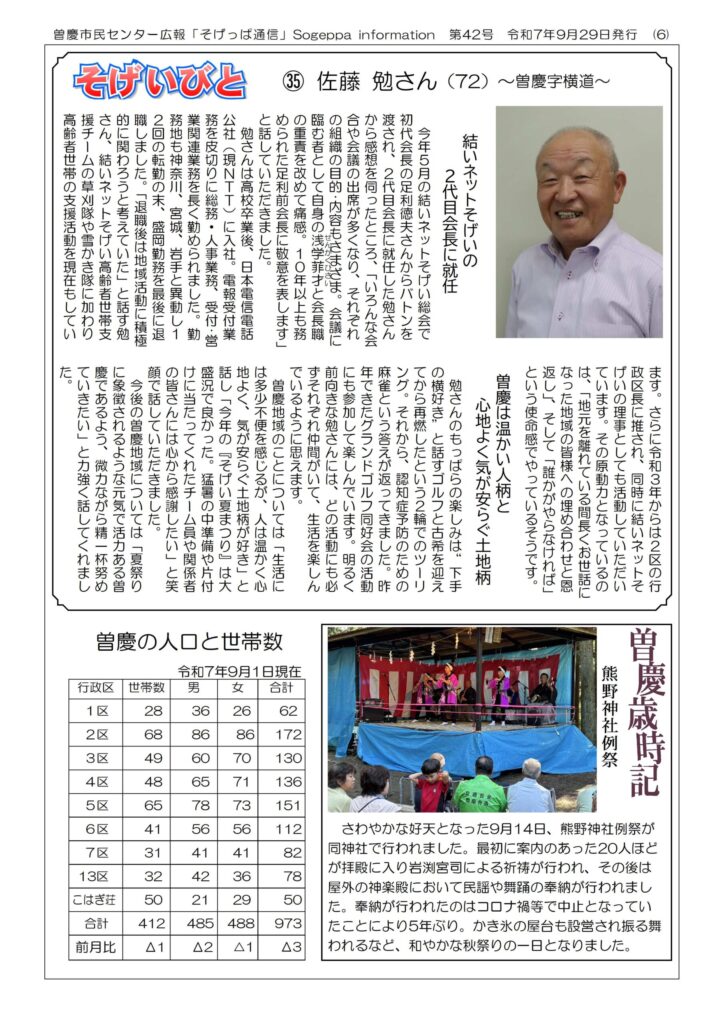 曽慶市民センター広報「そげっぱ通信」Sogeppa information　第42号　令和7年9月29日発行　(6)
そげいびと
㉟ 佐藤 勉さん（72）～曽慶字横道～
結いネットそげいの
２代目会長に就任
今年５月の結いネットそげい総会で
初代会長の足利徳夫さんからバトンを
渡され、２代目会長に就任した勉さん
から感想を伺ったところ、「いろんな会
合や会議の出席が多くなり、それぞれ
の組織の目的・内容もさまざま。会議に
臨む者として自身の浅学菲才と会長職
せんがくひさい
の重責を改めて痛感。１０年以上も務
められた足利前会長に敬意を表します」
と話していただきました。
勉さんは高校卒業後、日本電信電話
公社（現ＮＴＴ）に入社。電報受付業
務を皮切りに総務・人事業務、受付・営
業関連業務を長く勤められました。勤
務地も神奈川、宮城、岩手と異動し１
２回の転勤の末、盛岡勤務を最後に退
職しました。「退職後は地域活動に積極
的に関わろうと考えていた」と話す勉
さん、結いネットそげい高齢者世帯支
援チームの草刈隊や雪かき隊に加わり
高齢者世帯の支援活動を現在もしてい
ます。さらに令和３年からは２区の行
政区長に推され、同時に結いネットそ
げいの理事としても活動していただい
ています。その原動力となっているの
は、「地元を離れている間長くお世話に
なった地域の皆様への埋め合わせと恩
返し」、そして「誰かがやらなければ」
という使命感でやっているそうです。
曽慶は温かい人柄と
心地よく気が安らぐ土地柄
勉さんのもっぱらの楽しみは〝下手
の横好き〟と話すゴルフと古希を迎え
てから再燃したという２輪でのツーリ
ング。それから、認知症予防のための
麻雀という答えが返ってきました。昨
年できたグランドゴルフ同好会の活動
にも参加して楽しんでいます。明るく
前向きな勉さんには、どの活動にも必
ずそれぞれ仲間がいて、生活を楽しん
でいるように思えます。
曽慶地域のことについては「生活に
は多少不便を感じるが、人は温かく心
地よく、気が安らぐ土地柄が好き」と
話し「今年の『そげい夏まつり』は大
盛況で良かった。猛暑の中準備や片付
けに当たってくれたチーム員や関係者
の皆さんには心から感謝したい」と笑
顔で話していただきました。
今後の曽慶地域については「夏祭り
に象徴されるような元気で活力ある曽
慶であるよう、微力ながら精一杯努め
ていきたい」と力強く話してくれまし
た。
曽慶の人口と世帯数
令和7年9月1日現在
行政区 世帯数 男 女 合計
1区 28 36 26 62
2区 68 86 86 172
3区 49 60 70 130
4区 48 65 71 136
5区 65 78 73 151
6区 41 56 56 112
7区 31 41 41 82
13区 32 42 36 78
こはぎ荘 50 21 29 50
合計 412 485 488 973
前月比 △1 △2 △1 △3
曽慶歳時記
熊野神社例祭
さわやかな好天となった9月14日、熊野神社例祭が
同神社で行われました。最初に案内のあった20人ほど
が拝殿に入り岩渕宮司による祈祷が行われ、その後は
屋外の神楽殿において民謡や舞踊の奉納が行われまし
た。奉納が行われたのはコロナ禍等で中止となってい
たことにより5年ぶり。かき氷の屋台も設営され振る舞
われるなど、和やかな秋祭りの一日となりました。